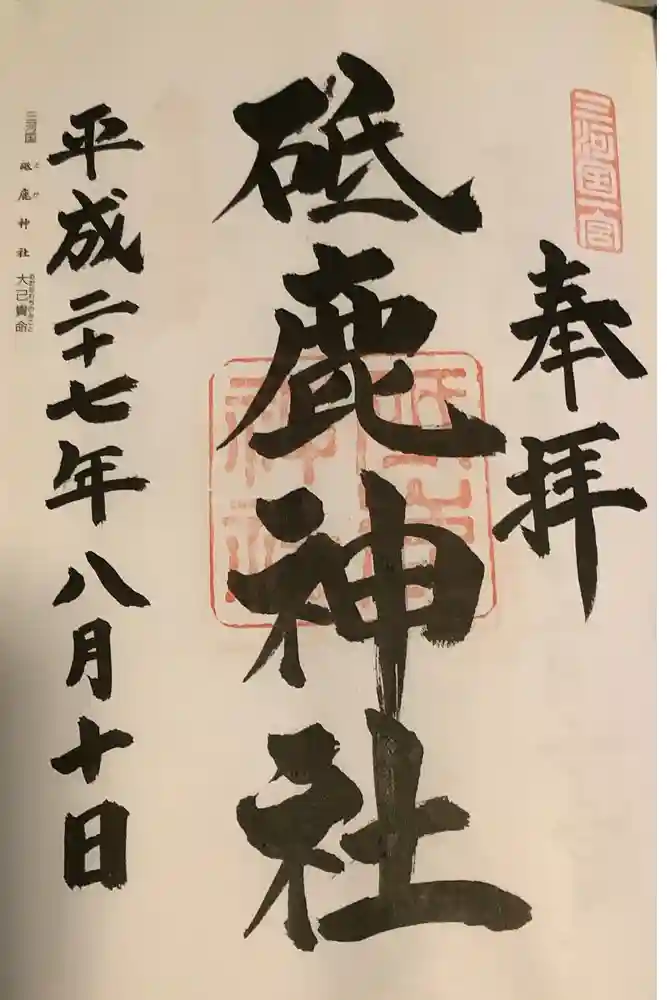 三河国一宮
奉拝
砥鹿神社
平成二十七年八月十日
三河国 砥鹿神社 大己貴命